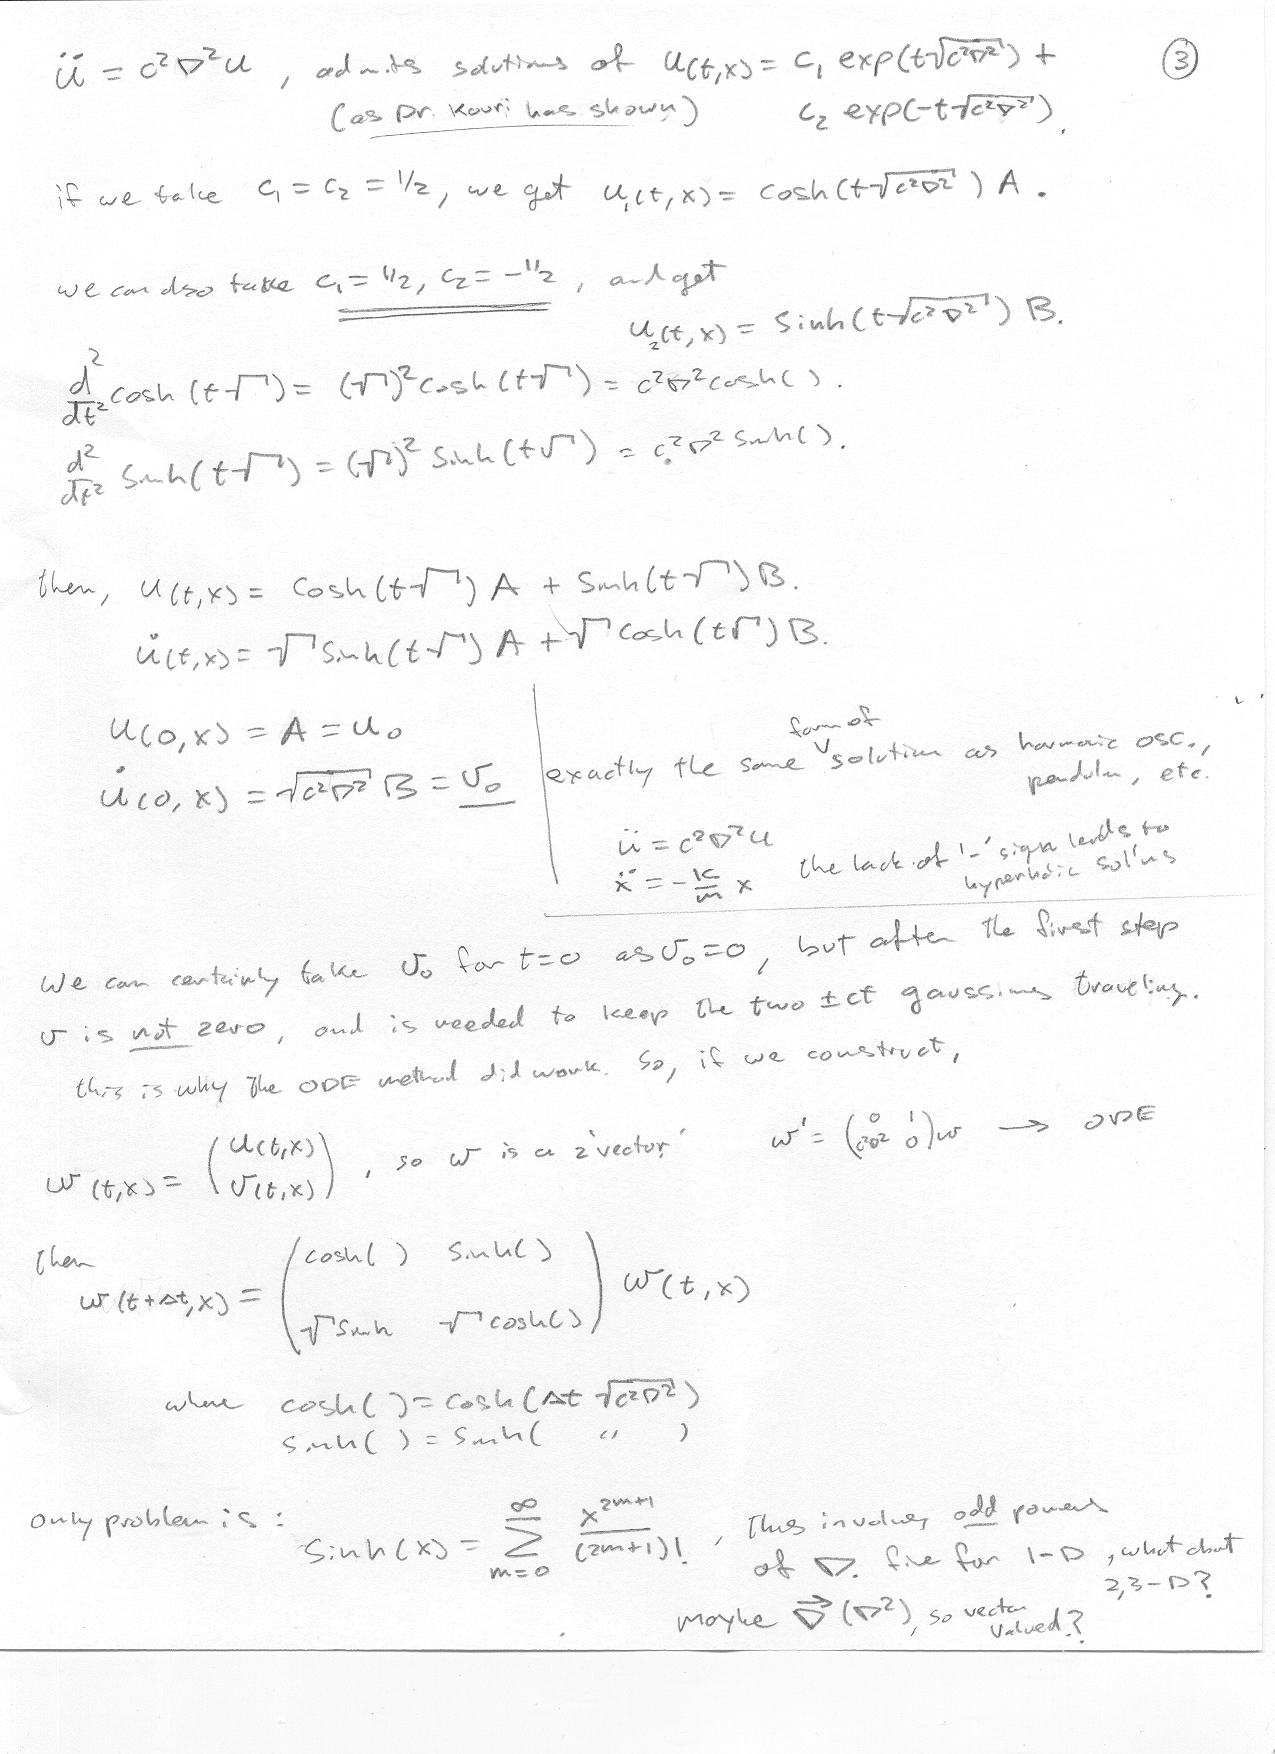 ü = c²∇²u , admits solutions of u(t,x) = c₁ exp(t√c²∇²) + ③
(as Dr. Kouri has shown) c₂ exp(-t√c²∇²).
if we take c₁ = c₂ = 1/2, we get u₁(t,x) = cosh(t√c²∇²) A .
we can also take c₁ = 1/2, c₂ = -1/2 , and get
u₂(t,x) = sinh(t√c²∇²) B.
d²/dt² cosh(t√ ) = (√ )² cosh(t√ ) = c²∇² cosh( ) .
d²/dt² sinh(t√ ) = (√ )² sinh(t√ ) = c²∇² sinh( ).
then, u(t,x) = cosh(t√ ) A + sinh(t√ ) B.
u̇(t,x) = √ sinh(t√ ) A + √ cosh(t√ ) B.
u(0,x) = A = u₀
u̇(0,x) = √c²∇² B = v₀
form of
exactly the same ∨ solution as harmonic osc.,
pendulum, etc.
ü = c²∇²u
ẍ = -k/m x the lack of '-' sign leads to
hyperbolic sol'ns
We can certainly take v₀ for t=0 as v₀=0, but after the first step
v is not zero, and is needed to keep the two ±ct gaussians traveling.
this is why the ODE method did work. So, if we construct,
w(t,x) = (u(t,x) v(t,x)) , so w is a 2'vector' w' = (0 1 c²∇² 0) w → ODE
then
w(t+Δt,x) = (cosh( ) sinh( ) √ sinh √ cosh( )) w(t,x)
where cosh( ) = cosh(Δt √c²∇²)
sinh( ) = sinh( " )
only problem is :
sinh(x) = ∑_{m=0}^{∞} x^{2m+1}/(2m+1)! , this involves odd powers
of ∇. fine for 1-D , what about
2,3-D?
maybe ∇⃗(∇²), so vector
valued?